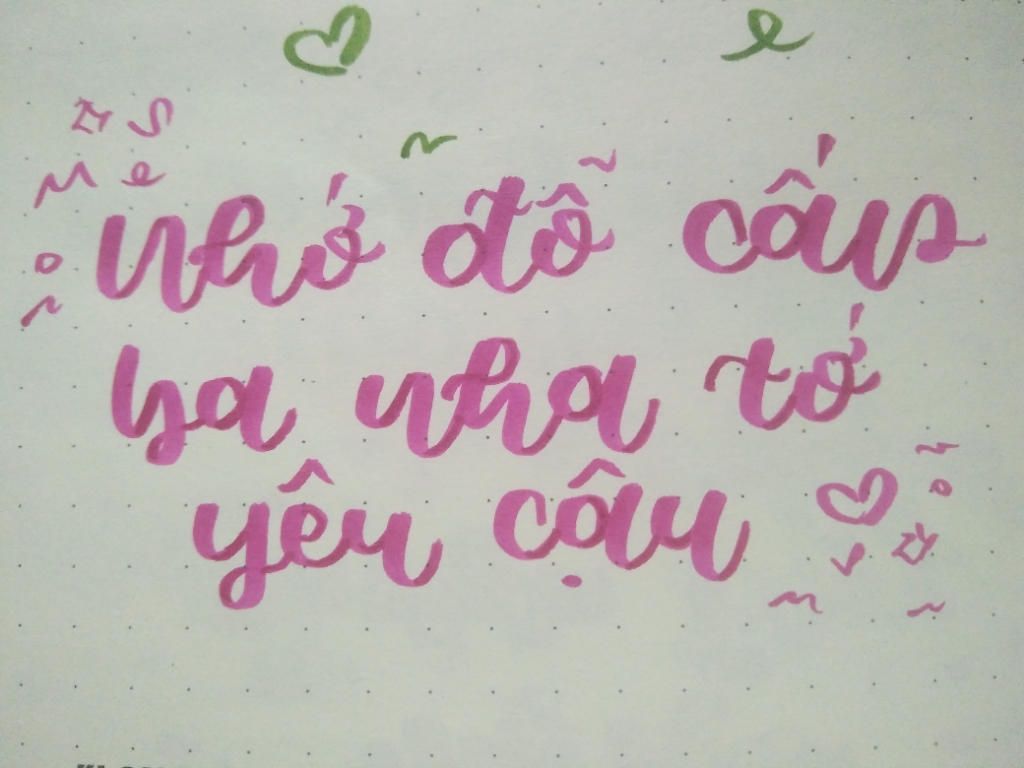 Nhớ đỗ cấp
ba nha tớ
yêu cậu